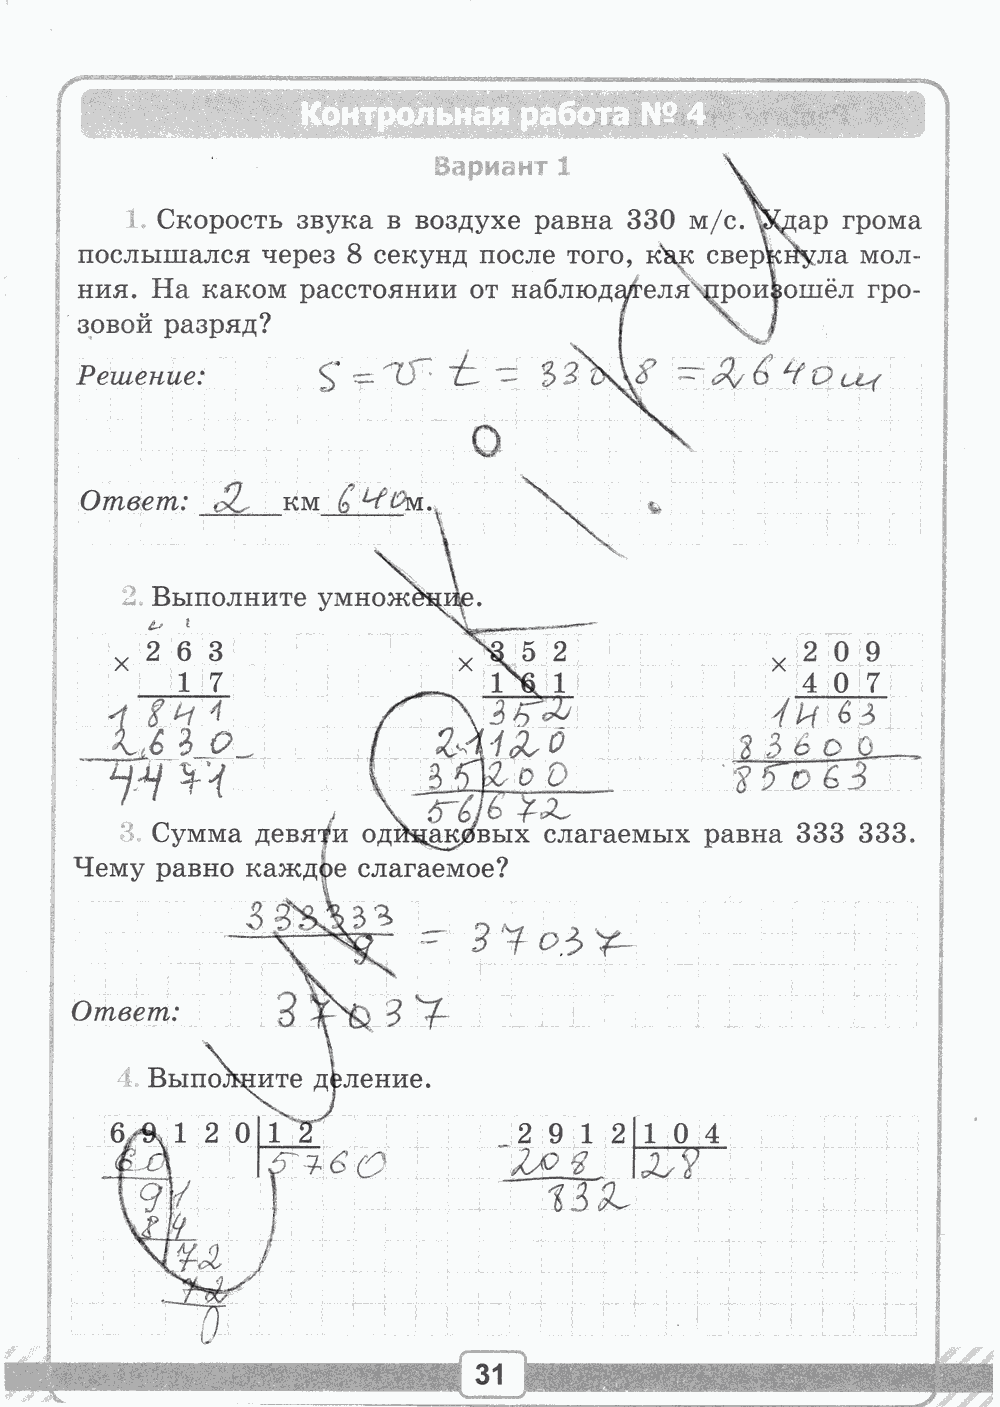 Контрольная работа № 4
Вариант 1
1. Скорость звука в воздухе равна 330 м/с. Удар грома
послышался через 8 секунд после того, как сверкнула мол-
ния. На каком расстоянии от наблюдателя произошёл гро-
зовой разряд?
Решение: S = v · t = 330 · 8 = 2640 м
Ответ: 2 км 640 м.
2. Выполните умножение.
× 263 × 352 × 209
17 161 407
1841 352 1463
2630 21120 83600
4471 35200 85063
56672
3. Сумма девяти одинаковых слагаемых равна 333 333.
Чему равно каждое слагаемое?
333333
9 = 37037
Ответ: 37037
4. Выполните деление.
69120 12 - 2912 104
60 5760 208 28
91 832
84
72
72
0
31